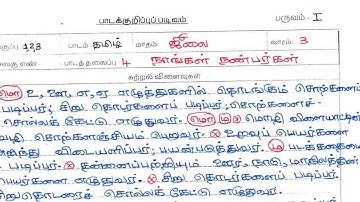 பாடக்குறிப்புப் படிவம் பருவம் - I
வகுப்பு 1,2,3 பாடம் தமிழ் மாதம்: ஜூலை வாரம்: 3
அலகு எண் : பாடத் தலைப்பு 4 நாங்கள் நண்பர்கள்
கற்றல் விளைவுகள்
மொ உ, ஊ, எ, ஏ எழுத்துகளில் தொடங்கும் சொற்களைப்
படிப்பர்; சிறு தொடர்களைப் படிப்பர்; சொற்களைச்-
சொல்லக் கேட்டு எழுதுவர். மொழி விளையாட்டின்
வழி சொற்களஞ்சியம் பெறுவர் உறவுப் பெயர்களை
அறிந்து விடையளிப்பர்; பயன்படுத்துவர். படக்கதையை
படிப்பர் தன்னைப்பற்றியும் ஊர், நாடு, மாநிலத்தின்
பெயர்களை எழுதுவர். சிறு தொடர்களைப் படிப்பர்.
சிறுதொடரைச் சொல்லக் கேட்டு எழுதுவர்.